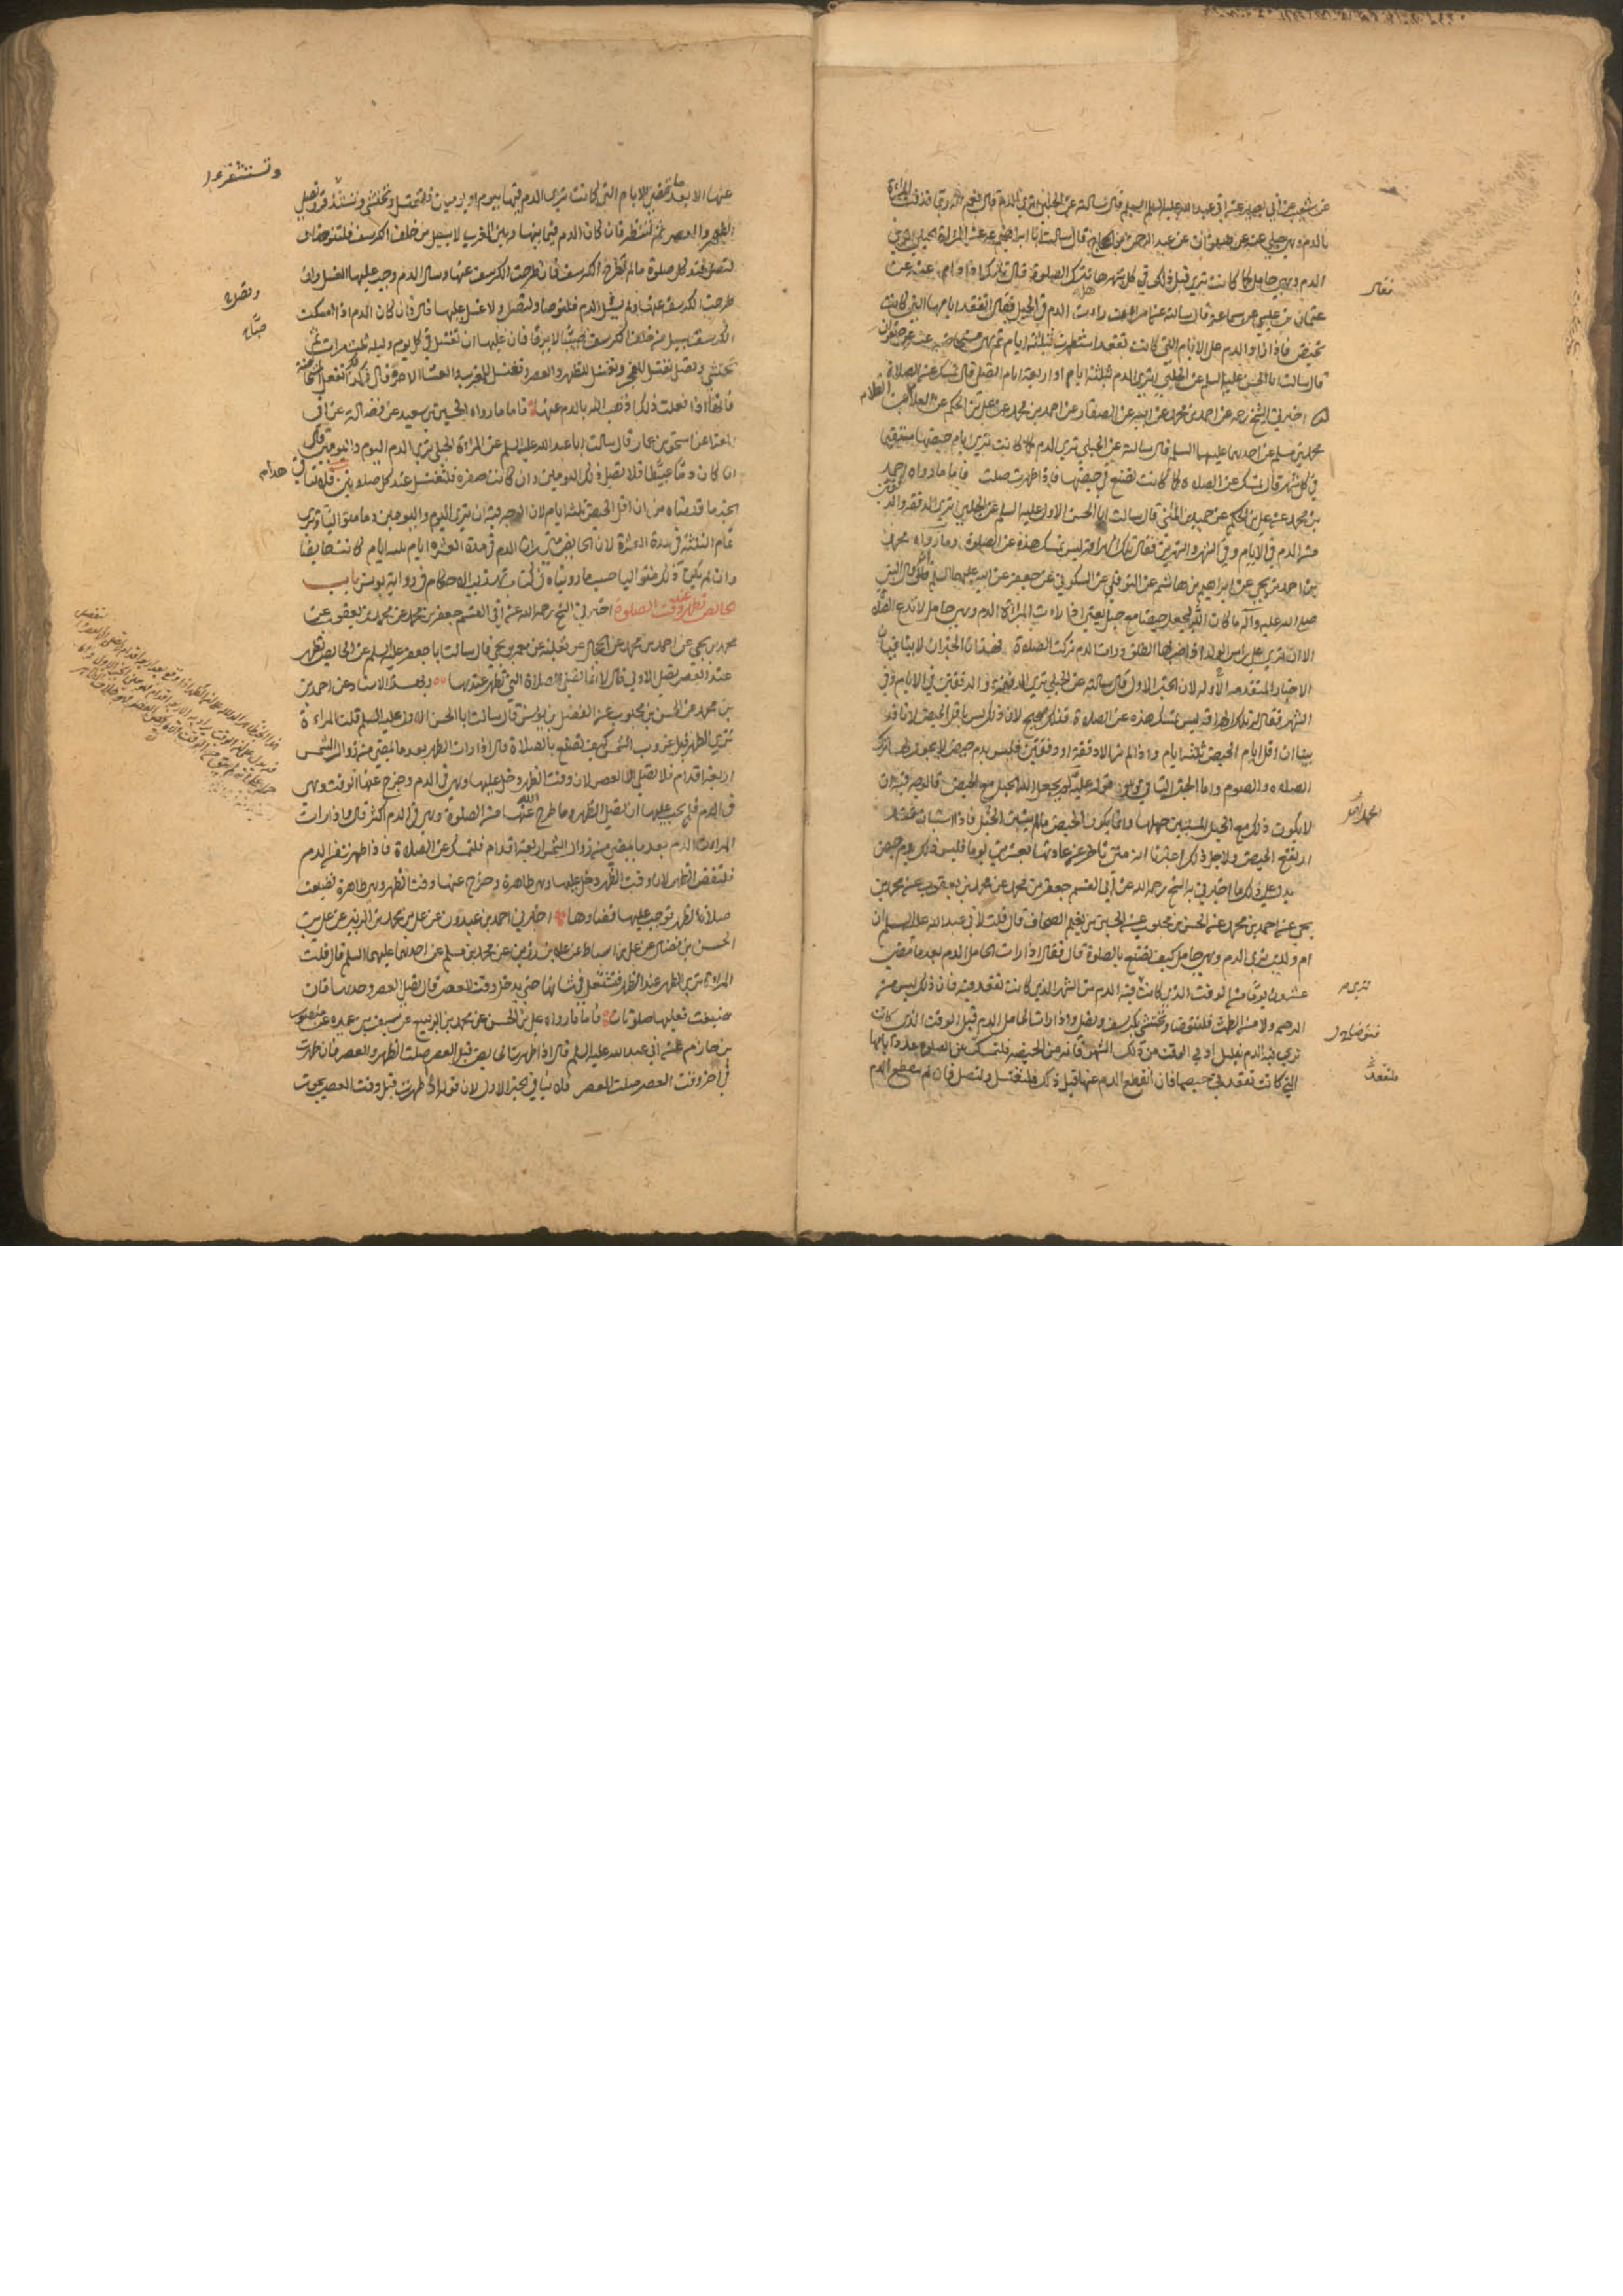 عن شعيب عن ابي بصير عن ابي عبد الله عليه السلم قال سالته عن الحبلي تري الدم قال نعم انه ربما قذفت المراة
بالدم وهي حبلي عنه عن صفوان عن عبد الرحمن بن الحجاج قال سالت ابا ابراهيم عن المراة الحبلي تري
الدم وهي حامل كما كانت تري قبل ذلك في كل شهر هل تترك الصلوة قال تترك اذا دام عنه عن
عثمان بن عيسي عن سماعة قال سالته عن امراة رات الدم في الحبل قال تقعد ايامها التي كانت
تحيض فاذا زاد الدم علي الايام التي كانت تقعد استظهرت بثلثة ايام ثم هي مستحاضة عنه عن صفوان
قال سالت ابا الحسن عليه السلم عن الحبلي تري الدم ثلثة ايام او اربعة ايام تصلي قال تمسك عن الصلاة
اخبرني الشيخ رحمه عن احمد بن محمد عن ابيه عن الصفار عن احمد بن محمد عن علي بن الحكم عن العلا عن
محمد بن مسلم عن احدهما عليهما السلم قال سالته عن الحبلي تري الدم كما كانت تري ايام حيضها مستقيما
في كل شهر قال تمسك عن الصلاة كما كانت تصنع في حيضها فاذا طهرت صلت فاما ما رواه احمد
بن محمد عن علي بن الحكم عن حميد بن المثني قال سالت ابا الحسن الاول عليه السلم عن الحبلي تري الدفقة والدفقتين
من الدم في الايام وفي الشهر والشهرين فقال تلك الهراقة ليس تمسك هذه عن الصلوة وما رواه محمد
بن احمد بن يحيي عن ابراهيم بن هاشم عن النوفلي عن السكوني عن جعفر عن ابيه عليهما السلم قال قال النبي
صلي الله عليه وآله ما كان الله ليجعل حيضا مع حبل يعني اذا رات المراة الدم وهي حامل لا تدع الصلاة
الا ان تري علي راس الولد اذا ضربها الطلق ورات الدم تركت الصلوة فهذان الخبران لا ينافيان
الاخبار المتقدمة الاوله لان الخبر الاول قال سالته عن الحبلي تري الدفقة والدفقتين في الايام وفي
الشهر فقال تلك الهراقة ليس تمسك هذه عن الصلاة فذلك صحيح لان ذلك ليس باقل الحيض لانا قد
بينا ان اقل ايام الحيض ثلثة ايام واذا لم تر الا دفقة او دفقتين فليس بدم حيض لا يجوز لها ترك
الصلاة والصوم واما الخبر الثاني وهو قوله عليه لم يجعل الله الحبل مع الحيض فالوجه فيه ان
لا يكون ذلك مع الحبل المستبين حملها وانما يكون الحيض مالم يستبن الحبل فاذا استبان فقد
ارتفع الحيض ولاجل ذلك اعتبرنا انه متي تاخر عن عادتها بعشرين يوما فليس ذلك بدم حيض
يدل علي ذلك ما اخبرني به الشيخ رحمه الله عن ابي القسم جعفر بن محمد عن محمد بن يعقوب عن محمد بن
يحيي عن احمد بن محمد عن الحسن بن محبوب عن الحسين بن نعيم الصحاف قال قلت لابي عبد الله عليه السلم ان
ام ولدي تري الدم وهي حامل كيف تصنع بالصلوة قال فقال اذا رات الحامل الدم بعد ما تمضي
عشرون يوما من الوقت الذي كانت تري فيه الدم من الشهر الذي كانت تقعد فيه فان ذلك ليس من
الرحم ولا من الطمث فلتتوضا وتحتشي بكرسف وتصلي واذا رات الحامل الدم قبل الوقت الذي كانت
تري فيه الدم بقليل او في الوقت من ذلك الشهر فانه من الحيضة فلتمسك عن الصلوة عدد ايامها
التي كانت تقعد في حيضها فان انقطع الدم عنها قبل ذلك فلتغتسل ولتصل فان لم ينقطع الدم
عنها الا بعد ما تمضي الايام التي كانت تري الدم فيها بيوم او يومين فلتغتسل وتحتشي وتستذفر وتصلي
الظهر والعصر ثم لتنظر فان كان الدم فيما بينها وبين المغرب لا يسيل من خلف الكرسف فلتتوضا
لتصل عند كل صلوة ما لم تطرح الكرسف فان طرحت الكرسف عنها وسال الدم وجب عليها الغسل وان
طرحت الكرسف عنها ولم يسل الدم فلتتوضا ولتصل ولا غسل عليها قال فان كان الدم اذا امسكت
الكرسف يسيل من خلف الكرسف صبيبا لا يرقا فان عليها ان تغتسل في كل يوم وليلة ثلث مرات ثم
تحتشي وتصلي تغتسل للفجر وتغتسل للظهر والعصر وتغتسل للمغرب والعشا الاخرة قال وكذا تفعل المستحاضة
فانها اذا فعلت ذلك اذهب الله بالدم عنها فاما ما رواه الحسين بن سعيد عن فضالة عن ابي
المعزا عن اسحق بن عمار قال سالت ابا عبد الله عليه السلم عن المراة الحبلي تري الدم اليوم واليومين قال
ان كان دما عبيطا فلا تصلي ذلك اليومين وان كانت صفرة فلتغتسل عند كل صلوتين فلا ينافي هذا
الخبر ما قدمناه من ان اقل الحيض ثلثة ايام لان الوجه فيه ان تري اليوم واليومين دما متواليا وتري
تمام الثلثة في مدة العشرة لان الحايض متي رات الدم في مدة العشرة ايام ثلثة ايام كانت حايضا
وان لم يكن ذلك متواليا حسب ما رويناه في كتاب تهذيب الاحكام في رواية يونس باب
الحائض تطهر عند وقت الصلوة اخبرني الشيخ رحمه الله عن ابي القسم جعفر بن محمد عن محمد بن يعقوب عن
محمد بن يحيي عن احمد بن محمد عن الحجال عن ثعلبة عن معمر بن يحيي قال سالت ابا جعفر عليه السلم عن الحايض تطهر
عند العصر تصلي الاولي قال لا انما تصلي الصلاة التي تطهر عندها وبهذا الاسناد عن احمد بن
بن محمد عن الحسن بن محبوب عن الفضل بن يونس قال سالت ابا الحسن الاول عليه السلم قلت المراءة
تري الطهر قبل غروب الشمس كيف تصنع بالصلاة قال اذا رات الطهر بعد ما يمضي من زوال الشمس
اربعة اقدام فلا تصلي الا العصر لان وقت الظهر دخل عليها وهي في الدم وخرج عنها الوقت وهي
في الدم فلم يجب عليها ان تصلي الظهر وما طرح الله عنها من الصلوة وهي في الدم اكثر قال واذا رات
المراة الدم بعد ما يمضي من زوال الشمس اربعة اقدام فلتمسك عن الصلاة فاذا طهرت من الدم
فلتقض الظهر لان وقت الظهر دخل عليها وهي طاهرة وخرج عنها وقت الظهر وهي طاهرة فضيعت
صلاة الظهر فوجب عليها قضاوها اخبرني احمد بن عبدون عن علي بن محمد بن الزبير عن علي بن
الحسن بن فضال عن علي بن اسباط عن علا بن رزين عن محمد بن مسلم عن احدهما عليهما السلم قال قلت
المراة تري الطهر عند الظهر فتشتغل في شانها حتي يدخل وقت العصر قال تصلي العصر وحدها فان
ضيعت فعليها صلوتان فاما ما رواه علي بن الحسن عن محمد بن الربيع عن سيف بن عميرة عن منصور
بن حازم عن ابي عبد الله عليه السلم قال اذا طهرت الحايض قبل العصر صلت الظهر والعصر فان طهرت
في اخر وقت العصر صلت العصر فلا ينافي الخبر الاول لان قوله اذا طهرت قبل وقت العصر يجوز